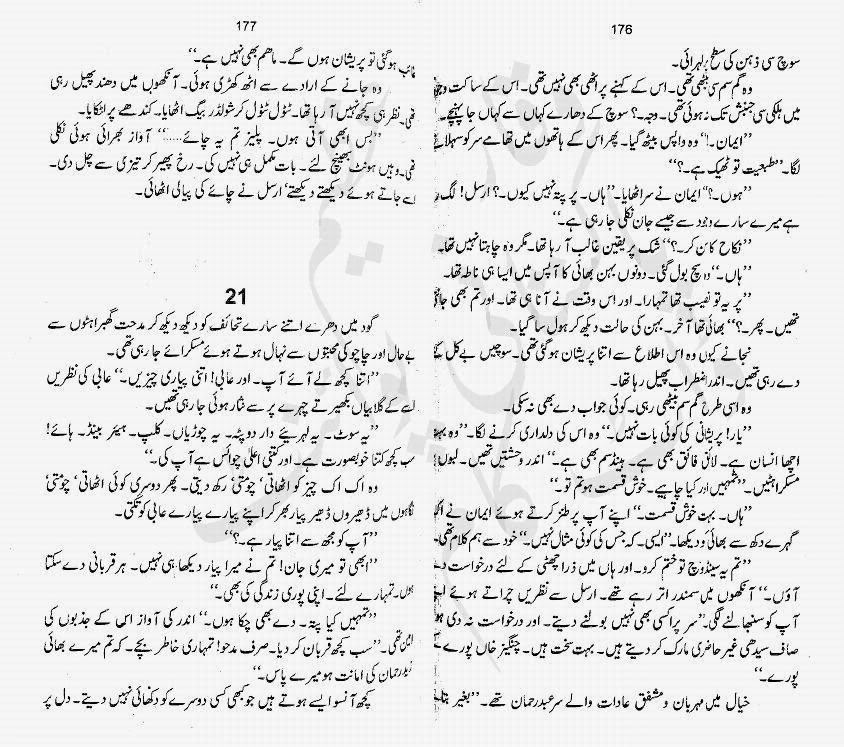 176
سوچ سی ذہن کی سطح پر لہرائی۔
وہ گم سم سی بیٹھی تھی۔ اس کے کہنے پر اٹھی بھی نہیں تھی۔ اس کے ساکت وجود
میں ہلکی سی جنبش تک نہ ہوئی تھی۔ وجہ۔؟ سوچ کے دھارے کہاں سے کہاں جا پہنچے۔
’’ایمان۔!‘‘ وہ واپس بیٹھ گیا۔ پھر اس کے ہاتھوں میں تھامے سر کو سہلانے
لگا۔ ’’طبیعت تو ٹھیک ہے۔؟‘‘
’’ہوں۔؟‘‘ ایمان نے سر اٹھایا۔ ’’ہاں۔ پر پتہ نہیں کیوں۔؟ ارسل! لگ
ہے میرے سارے وجود سے جیسے جان نکلی جا رہی ہے۔‘‘
’’نکاح کا سن کر۔؟‘‘ شک پر یقین غالب آ رہا تھا۔ مگر وہ چاہتا نہیں تھا۔
’’ہاں۔‘‘ وہ سچ بول گئی۔ دونوں بہن بھائی کا آپس میں ایسا ہی ناطہ تھا۔
’’پر یہ تو نصیب تھا تمہارا۔ اور اس وقت نے آنا ہی تھا۔ اور تم بھی جانتی
تھیں۔ پھر۔؟‘‘ بھائی تھا آخر۔ بہن کی حالت دیکھ کر ہول سا گیا۔
نجانے کیوں وہ اس اطلاع سے اتنا پریشان ہو گئی تھی۔ سوچیں بے کل کئے
دے رہی تھیں۔ اندر اضطراب پھیل رہا تھا۔
وہ اسی طرح گم سم بیٹھی رہی۔ کوئی جواب دے بھی نہ سکی۔
’’یار! پریشانی کی کوئی بات نہیں۔‘‘ وہ اس کی دلداری کرنے لگا۔ ’’وہ بہت
اچھا انسان ہے۔ لائق فائق بھی ہے۔ ہینڈسم بھی ہے۔‘‘ اندر وحشتیں تھیں۔ لبوں پر
مسکراہٹیں۔ ’’تمہیں اور کیا چاہیے۔ خوش قسمت ہو تم تو۔‘‘
’’ہاں۔ بہت خوش قسمت۔‘‘ اپنے آپ پر طنز کرتے ہوئے ایمان نے
گہرے دکھ سے بھائی کو دیکھا۔ ’’ایسی۔ کہ جس کی کوئی مثال نہیں۔‘‘ خود سے ہم کلام تھی۔
’’تم یہ سینڈوچ تو ختم کرو۔ اور ہاں میں ذرا چھٹی کے لئے درخواست دے
آؤں۔‘‘ آنکھوں میں سمندر اتر رہے تھے۔ ارسل سے نظریں چراتے ہوئے اپنے
آپ کو سنبھالنے لگی۔ ’’سر پراکسی بھی نہیں بولنے دیتے۔ اور درخواست نہ دی ہو
صاف سیدھی غیر حاضری مارک کر دیتے ہیں۔ بہت سخت ہیں۔ چنگیز خاں پورے کے
پورے۔‘‘
خیال میں مہربان و مشفق عادات والے سر عبدرحمان تھے۔ ’’بغیر بتائے
177
غائب ہو گئی تو پریشان ہوں گے۔ ماھم بھی نہیں ہے۔‘‘
وہ جانے کے ارادے سے اٹھ کھڑی ہوئی۔ آنکھوں میں دھند پھیل رہی
تھی۔ نظر ہی کچھ نہیں آ رہا تھا۔ ٹٹول ٹٹول کر شولڈر بیگ اٹھایا۔ کندھے پر لٹکایا۔
’’بس ابھی آتی ہوں۔ پلیز تم یہ چائے......‘‘ آواز بھرائی ہوئی نکلی
تھی۔ وہیں ہونٹ بھینچ لئے۔ بات مکمل ہی نہیں کی۔ رخ پھیر کر تیزی سے چل دی۔
اسے جاتے ہوئے دیکھتے دیکھتے‘ ارسل نے چائے کی پیالی اٹھائی۔
21
گود میں دھرے اتنے سارے تحائف کو دیکھ دیکھ کر مدحت گھبراہٹوں سے
بے حال اور چاچو کی محبتوں سے نہال ہوتے ہوئے مسکرائے جا رہی تھی۔
’’اتنا کچھ لے آئے آپ۔ اور عابی! اتنی پیاری چیزیں۔‘‘ عابی کی نظریں
اس کے گلابیاں بکھیرتے چہرے پر سے نثار ہوئی جا رہی تھیں۔
’’یہ سوٹ۔ یہ لہریئے دار دوپٹہ۔ یہ چوڑیاں۔ کلپ۔ ہیئر بینڈ۔ ہائے!
سب کچھ کتنا خوبصورت ہے۔ اور کتنی اعلیٰ چوائس ہے آپ کی۔‘‘
وہ اک اک چیز کو اٹھاتی‘ چومتی‘ رکھ دیتی۔ پھر دوسری کوئی اٹھاتی‘ چومتی‘
نگاہوں میں ڈھیروں ڈھیر پیار بھر کر اپنے پیارے پیارے عابی کو تکتی۔
’’آپ کو مجھ سے اتنا پیار ہے۔؟‘‘
’’ابھی تو میری جان! تم نے میرا پیار دیکھا ہی نہیں۔ ہر قربانی دے سکتا
ہوں۔ تمہارے لئے۔ اپنی پوری زندگی کی بھی۔‘‘
’’تمہیں کیا پتہ۔ دے بھی چکا ہوں۔‘‘ اندر کی آواز اس کے جذبوں کی
تھی۔ ’’سب کچھ قربان کر دیا۔ صرف مدحو! تمہاری خاطر بچے۔ کہ تم میرے بھائی
زیدرحمان کی امانت ہو میرے پاس۔‘‘
کچھ آنسو ایسے ہوتے ہیں جو کبھی کسی دوسرے کو دکھائی نہیں دیتے۔ دل پر